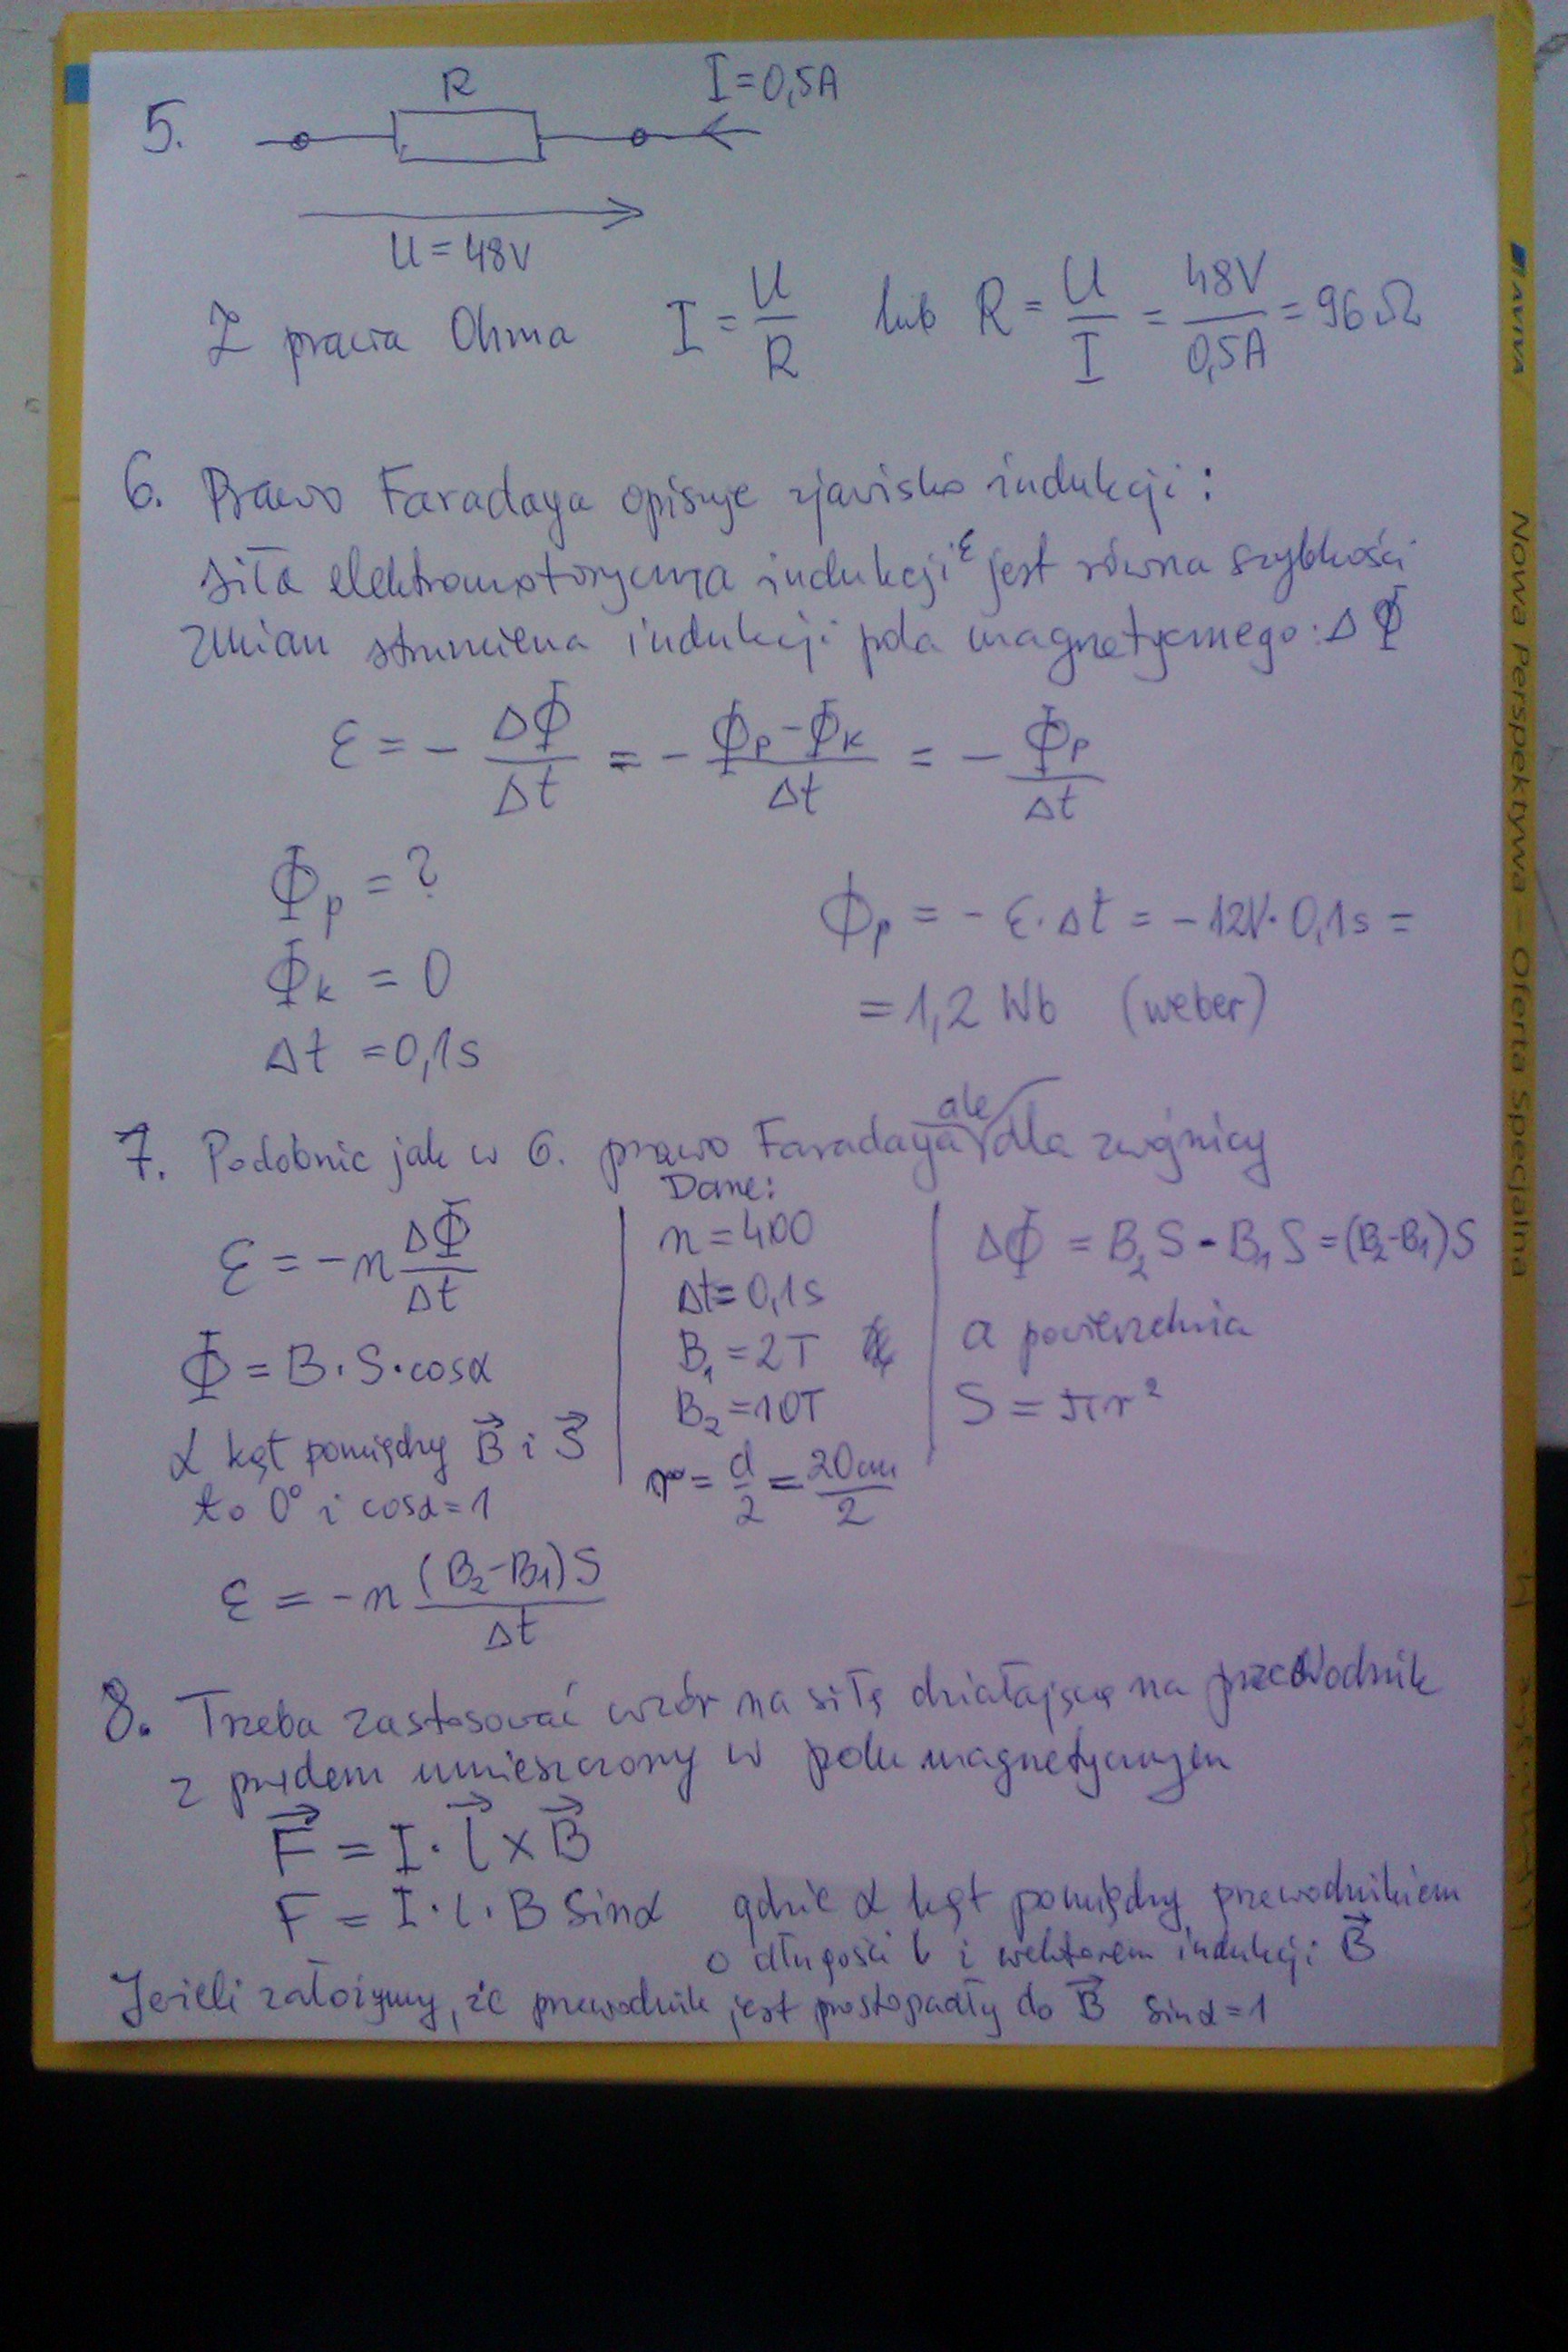 5.
R
I=0,5A
U=48V
Z prawa Ohma I = U/R lub R = U/I = 48V/0,5A = 96Ω
6. Prawo Faradaya opisuje zjawisko indukcji:
siła elektromotoryczna indukcji ε jest równa szybkości
zmian strumienia indukcji pola magnetycznego: ΔΦ
ε = - ΔΦ/Δt = - Φp-Φk/Δt = - Φp/Δt
Φp = ?
Φk = 0
Δt = 0,1s
Φp = - ε·Δt = -12V·0,1s =
= 1,2 Wb (weber)
7. Podobnie jak w 6. prawo Faradaya ale dla zwojnicy
ε = -n ΔΦ/Δt
Φ = B·S·cosα
α kąt pomiędzy B⃗ i S⃗
to 0° i cosα=1
ε = -n (B₂-B₁)S/Δt
Dane:
n = 400
Δt=0,1s
B₁ = 2T
B₂ = 10T
r = d/2 = 20cm/2
ΔΦ = B₂S - B₁S = (B₂-B₁)S
a powierzchnia
S = πr²
8. Trzeba zastosować wzór na siłę działającą na przewodnik
z prądem umieszczony w polu magnetycznym
F⃗ = I·l⃗×B⃗
F = I·l·B sinα gdzie α kąt pomiędzy przewodnikiem
o długości l i wektorem indukcji B⃗
Jeżeli założymy, że przewodnik jest prostopadły do B⃗ sinα=1
AVIVA
Nowa Perspektywa – Oferta Specjalna